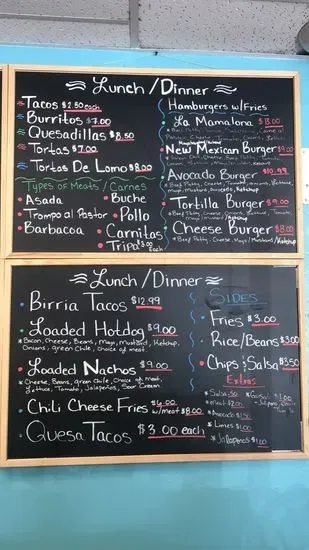 Lunch/Dinner
Tacos $2.50 each
Burritos $7.00
Quesadillas $8.50
Tortas $7.00
Tortas De Lomo $8.00
Types of Meats/Carnes
Asada
Trompo al Pastor
Barbacoa
Buche
Pollo
Carnitas
Tripa Each
Hamburgers w/Fries
La Mamalona $13.00
New Mexican Burger $9.00
Avocado Burger $10.99
Beef Patty, Cheese, Tomato,
Tortilla Burger $9.00
Cheese Burger $8.00
Beef Patty, Cheese, Mayo/Mustard/Ketchup
Lunch/Dinner
Birria Tacos $12.99
Loaded Hotdog $9.00
Bacon, Cheese, Beans, mayo, mustard, Ketchup,
Onions, green Chile, Choice of meat.
Loaded Nachos $9.00
Cheese, Beans, green Chile, Choice of meat,
Lettuce, Tomato, Jalapeños, Sour Cream
Chili Cheese Fries $6.00
w/meat $8.00
Quesa Tacos $3.00 each
SIDES
Fries $3.00
Rice/Beans $3.00
Chips & Salsa $3.50
Extras
Salsa .50
meat $2.00
Avocado $1.50
Limes $1.00
Jalapeños $1.00